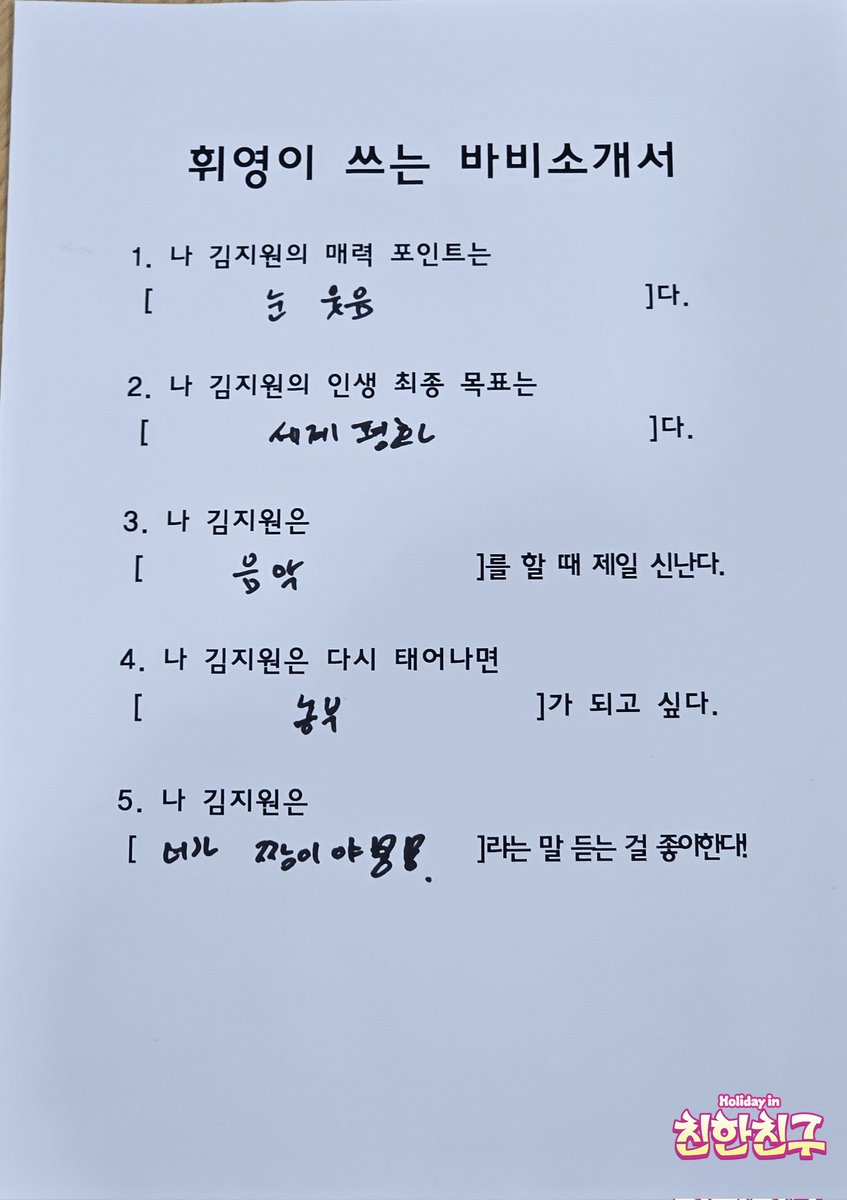 휘영이 쓰는 바비소개서
1. 나 김지원의 매력 포인트는
[ 눈 웃음 ]다.
2. 나 김지원의 인생 최종 목표는
[ 세계 평화 ]다.
3. 나 김지원은
[ 음악 ]를 할 때 제일 신난다.
4. 나 김지원은 다시 태어나면
[ 농부 ]가 되고 싶다.
5. 나 김지원은
[ 너가 짱이야 ]라는 말 듣는 걸 좋아한다!
Holiday in
친한친구